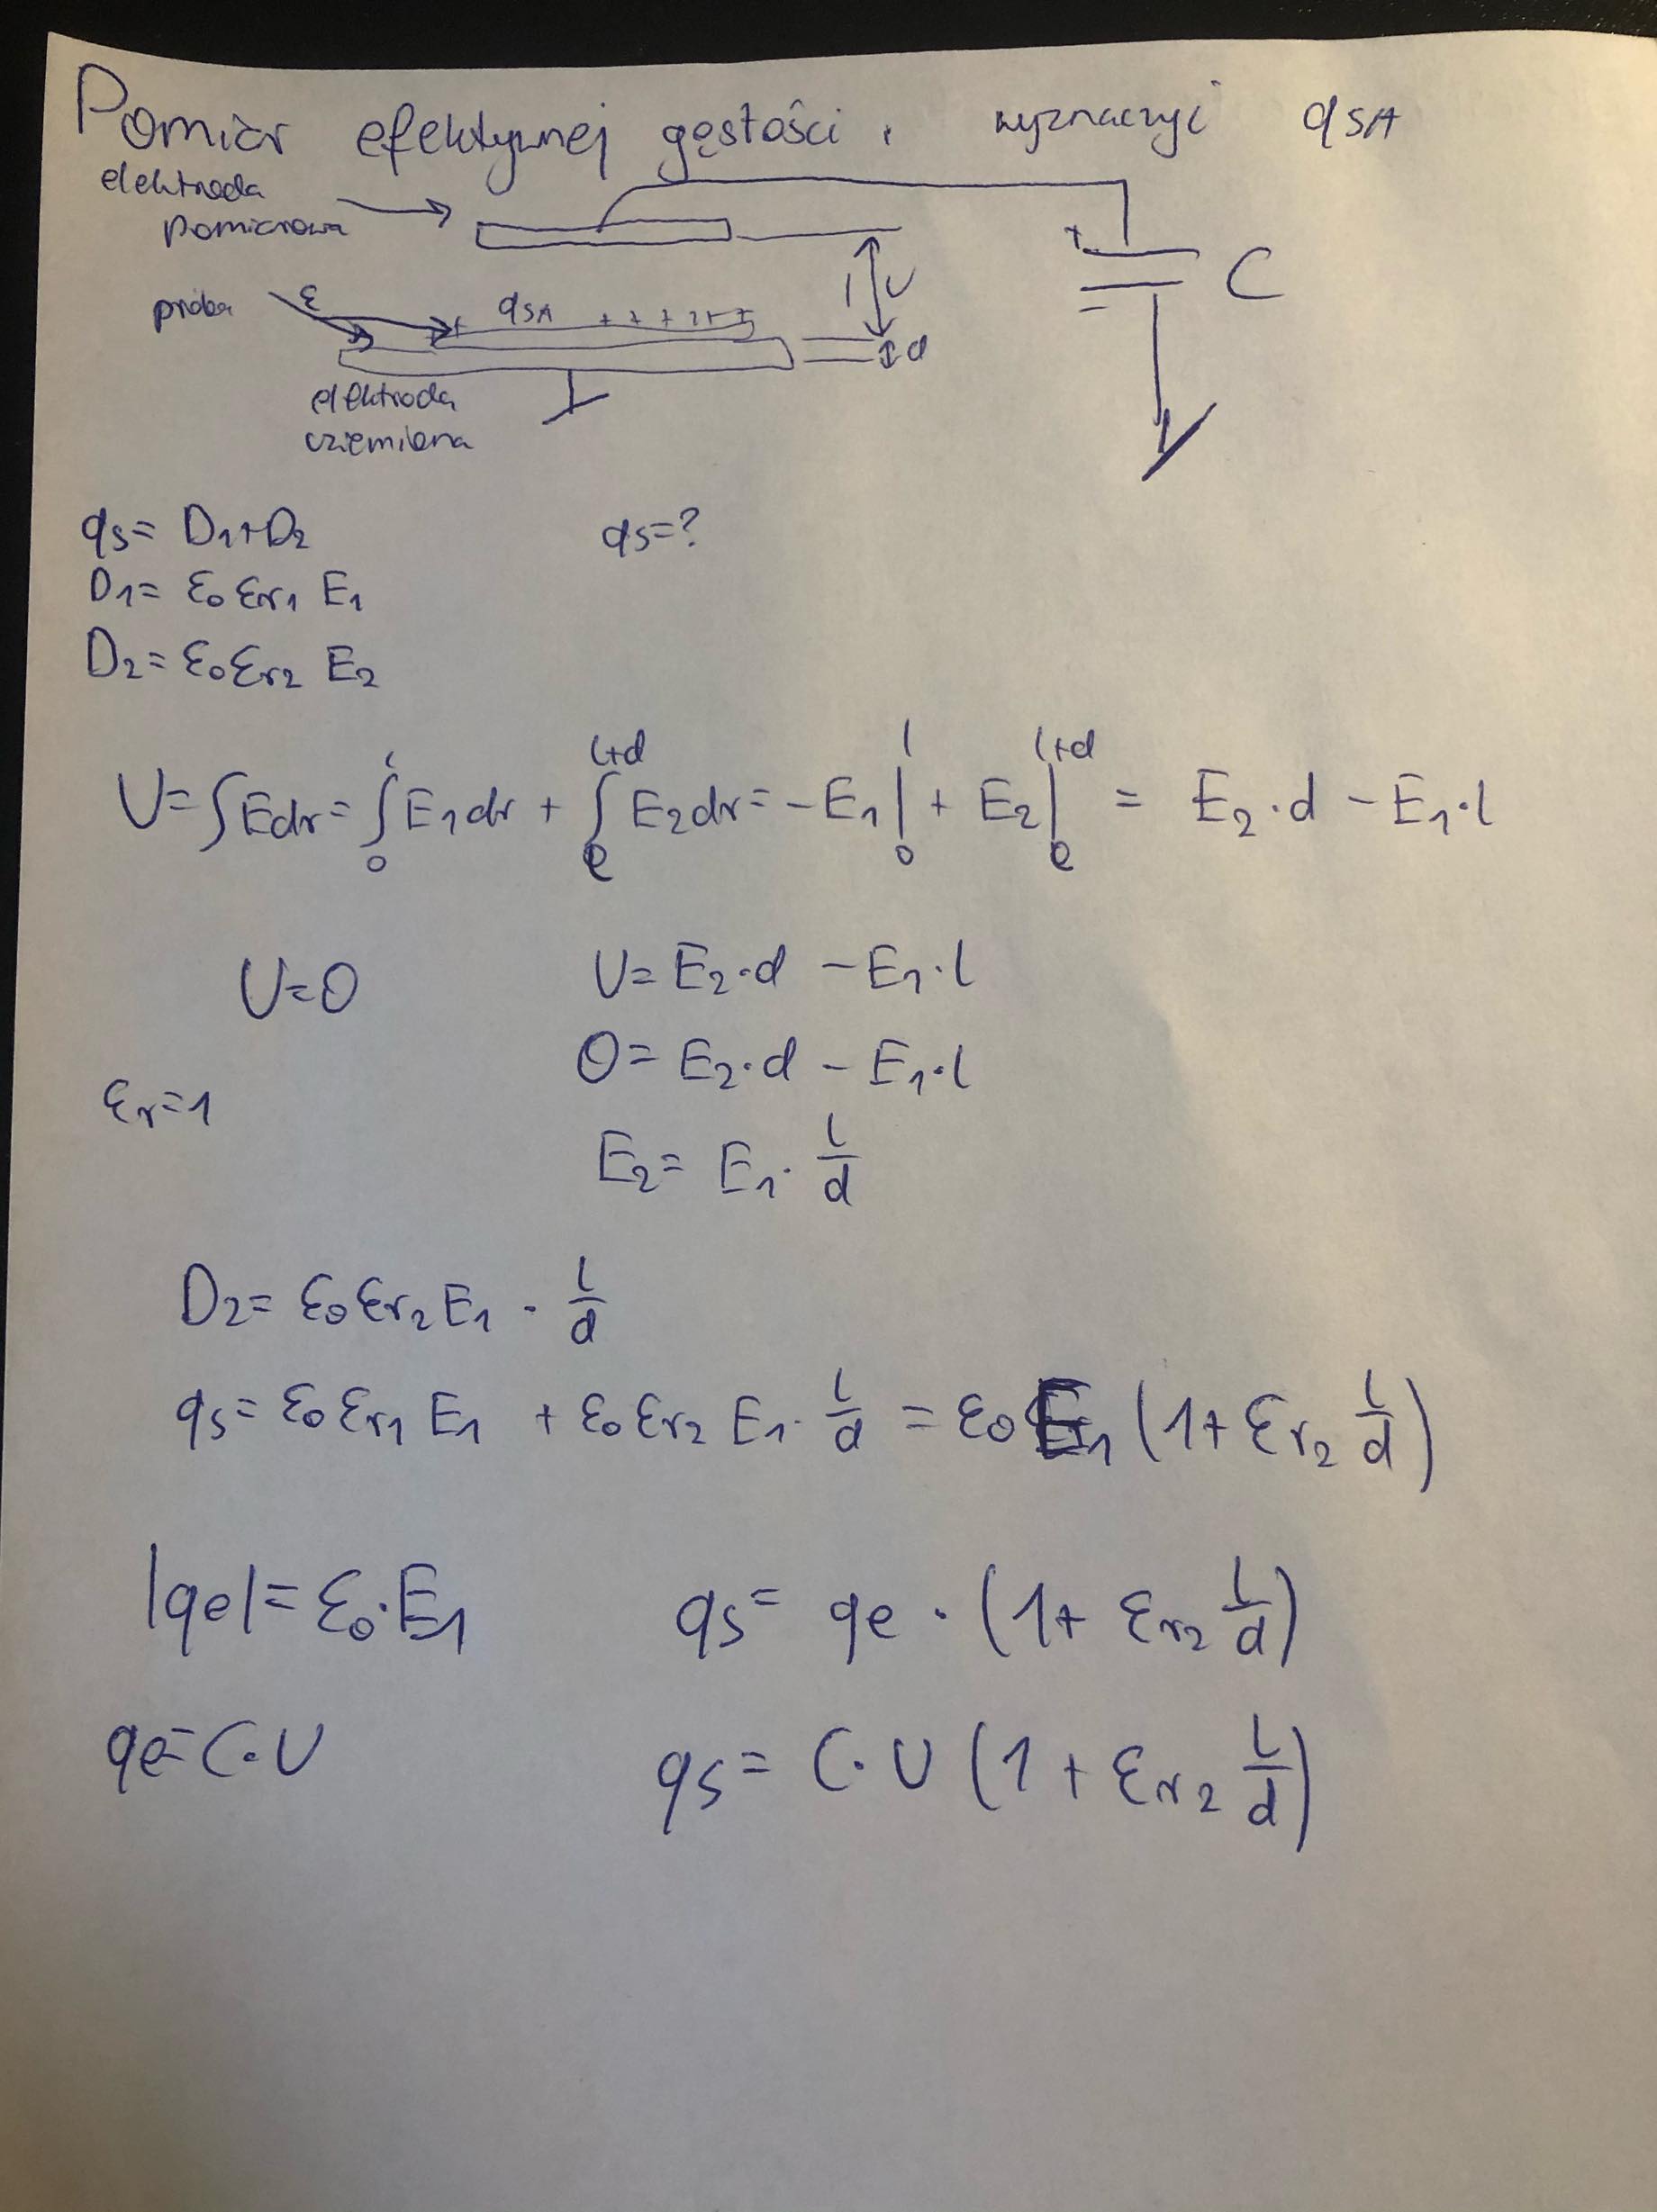 Pomiar efektywnej gęstości, wyznaczyć qSA
elektroda
pomiarowa
+
C
=
próba ε qSA + + + + + +
l U
d
elektroda
uziemiona
qs= D1+D2 qs=?
D1= ε0 εr1 E1
D2= ε0 εr2 E2
U= ∫Edr= ∫₀ˡ E1dr + ∫ₗˡ⁺ᵈ E2dr= -E1|₀ˡ + E2|ₗˡ⁺ᵈ = E2·d - E1·l
U=0 U= E2·d - E1·l
0= E2·d - E1·l
εr=1
E2= E1· l/d
D2= ε0 εr2 E1 · l/d
qs= ε0 εr1 E1 + ε0 εr2 E1· l/d = ε0 E1 (1+ εr2 l/d)
|qe|= ε0·E1 qs= qe · (1+ εr2 l/d)
qe= C·U qs= C·U (1+ εr2 l/d)